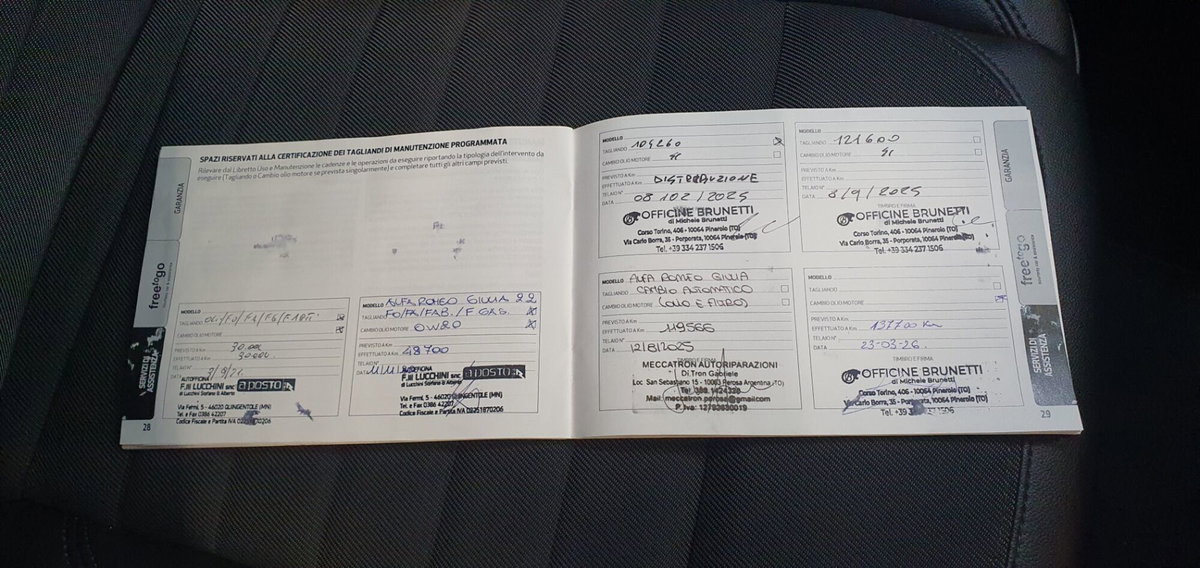 SPAZI RISERVATI ALLA CERTIFICAZIONE DEI TAGLIANDI DI MANUTENZIONE PROGRAMMATA
Rilevare dal Libretto Uso e Manutenzione le cadenze e le operazioni da eseguire riportando la tipologia dell'intervento da
eseguire (Tagliando o Cambio olio motore se prevista singolarmente) e completare tutti gli altri campi previsti.
GARANZIA
freetogo
SERVIZI DI
ASSISTENZA
MODELLO
TAGLIANDO
CAMBIO OLIO MOTORE
PREVISTO A Km 30.000
EFFETTUATO A Km 30.000
TELAIO N°
DATA
AUTOFFICINA
F.lli LUCCHINI snc a posto
di Lucchini Stefano & Alberto
Via Fermi, 5 - 46020 QUINGENTOLE (MN)
Tel. e Fax 0386 42207
Codice Fiscale e Partita IVA 02251870206
MODELLO ALFA ROMEO GIULIA 2.2
TAGLIANDO FO/FA/FAB./F GAS.
CAMBIO OLIO MOTORE 0W20
PREVISTO A Km
EFFETTUATO A Km 48700
TELAIO N°
DATA
AUTOFFICINA
F.lli LUCCHINI snc a posto
di Lucchini Stefano & Alberto
Via Fermi, 5 - 46020 QUINGENTOLE (MN)
Tel. e Fax 0386 42207
Codice Fiscale e Partita IVA 02251870206
28
MODELLO
TAGLIANDO 109260
CAMBIO OLIO MOTORE
PREVISTO A Km
EFFETTUATO A Km DISTRIBUZIONE
TELAIO N°
DATA 08/02/2025
OFFICINE BRUNETTI
di Michele Brunetti
Corso Torino, 406 - 10064 Pinerolo (TO)
Via Carlo Borra, 35 - Porporata, 10064 Pinerolo (TO)
Tel. +39 334 237 1506
MODELLO
TAGLIANDO 121600
CAMBIO OLIO MOTORE
PREVISTO A Km
EFFETTUATO A Km
TELAIO N°
DATA 8/9/2025
TIMBRO E FIRMA
OFFICINE BRUNETTI
di Michele Brunetti
Corso Torino, 406 - 10064 Pinerolo (TO)
Via Carlo Borra, 35 - Porporata, 10064 Pinerolo (TO)
Tel. +39 334 237 1506
MODELLO ALFA ROMEO GIULIA
TAGLIANDO CAMBIO AUTOMATICO
CAMBIO OLIO MOTORE (OLIO E FILTRO)
PREVISTO A Km
EFFETTUATO A Km 119566
TELAIO N°
DATA 12/8/2025
TIMBRO E FIRMA
MECCATRON AUTORIPARAZIONI
Di Tron Gabriele
Loc San Sebastiano 15 - 10063 Perosa Argentina (TO)
Mail: meccatron.perosa@gmail.com
MODELLO
TAGLIANDO
CAMBIO OLIO MOTORE
PREVISTO A Km
EFFETTUATO A Km 137700 Km
TELAIO N°
DATA 23-03-26
TIMBRO E FIRMA
OFFICINE BRUNETTI
di Michele Brunetti
Corso Torino, 406 - 10064 Pinerolo (TO)
Via Carlo Borra, 35 - Porporata, 10064 Pinerolo (TO)
GARANZIA
freetogo
SERVIZI DI
ASSISTENZA
29